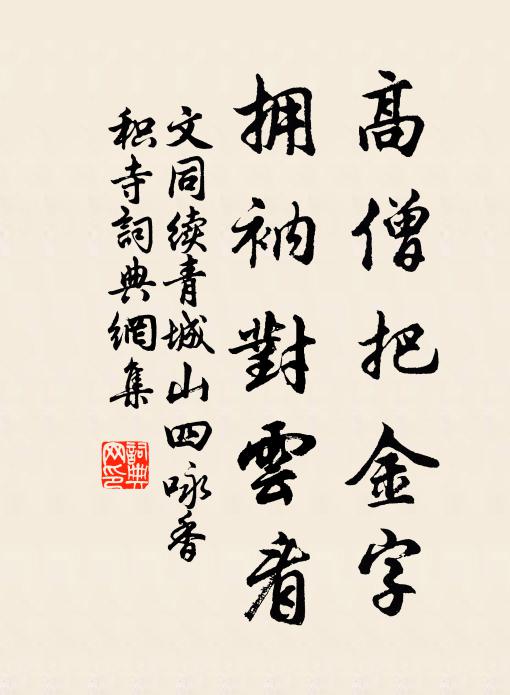 高僧把金字
拥衲對雲看
文同续青城山四咏香
积寺詞典網集
詞典
网印